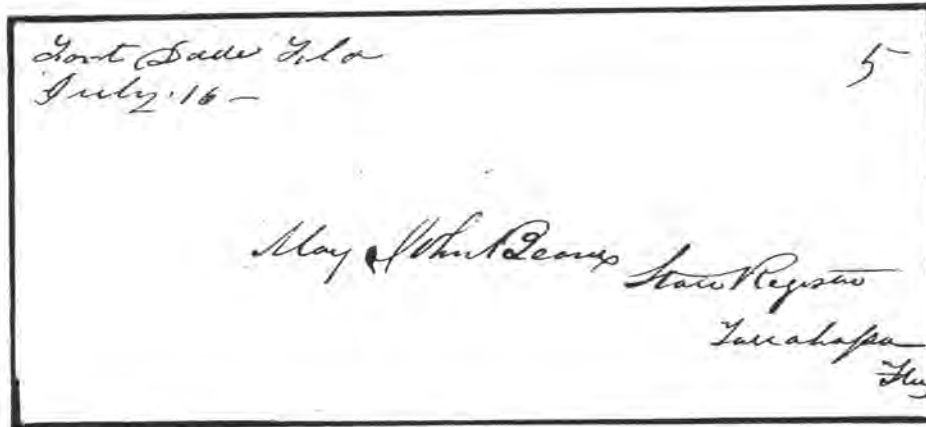 Fort Dade Fla
5
July. 16 –
Maj John Beard
State Register
Tallahassee